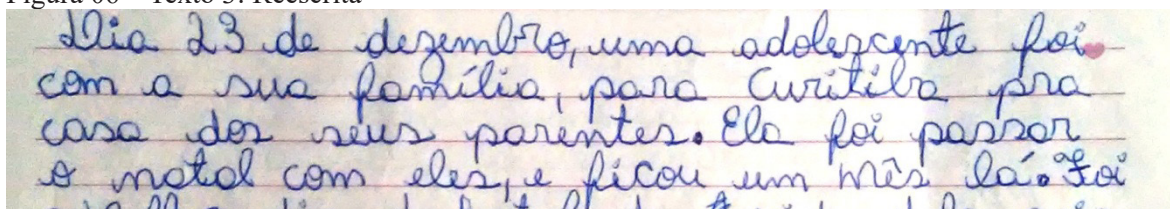 Figura 06 – Texto 3: Reescrita
Dia 23 de dezembro, uma adolescente foi
com a sua família, para Curitiba pra
casa dos seus parentes. Ela foi passar
o natal com eles, e ficou um mês lá. Foi